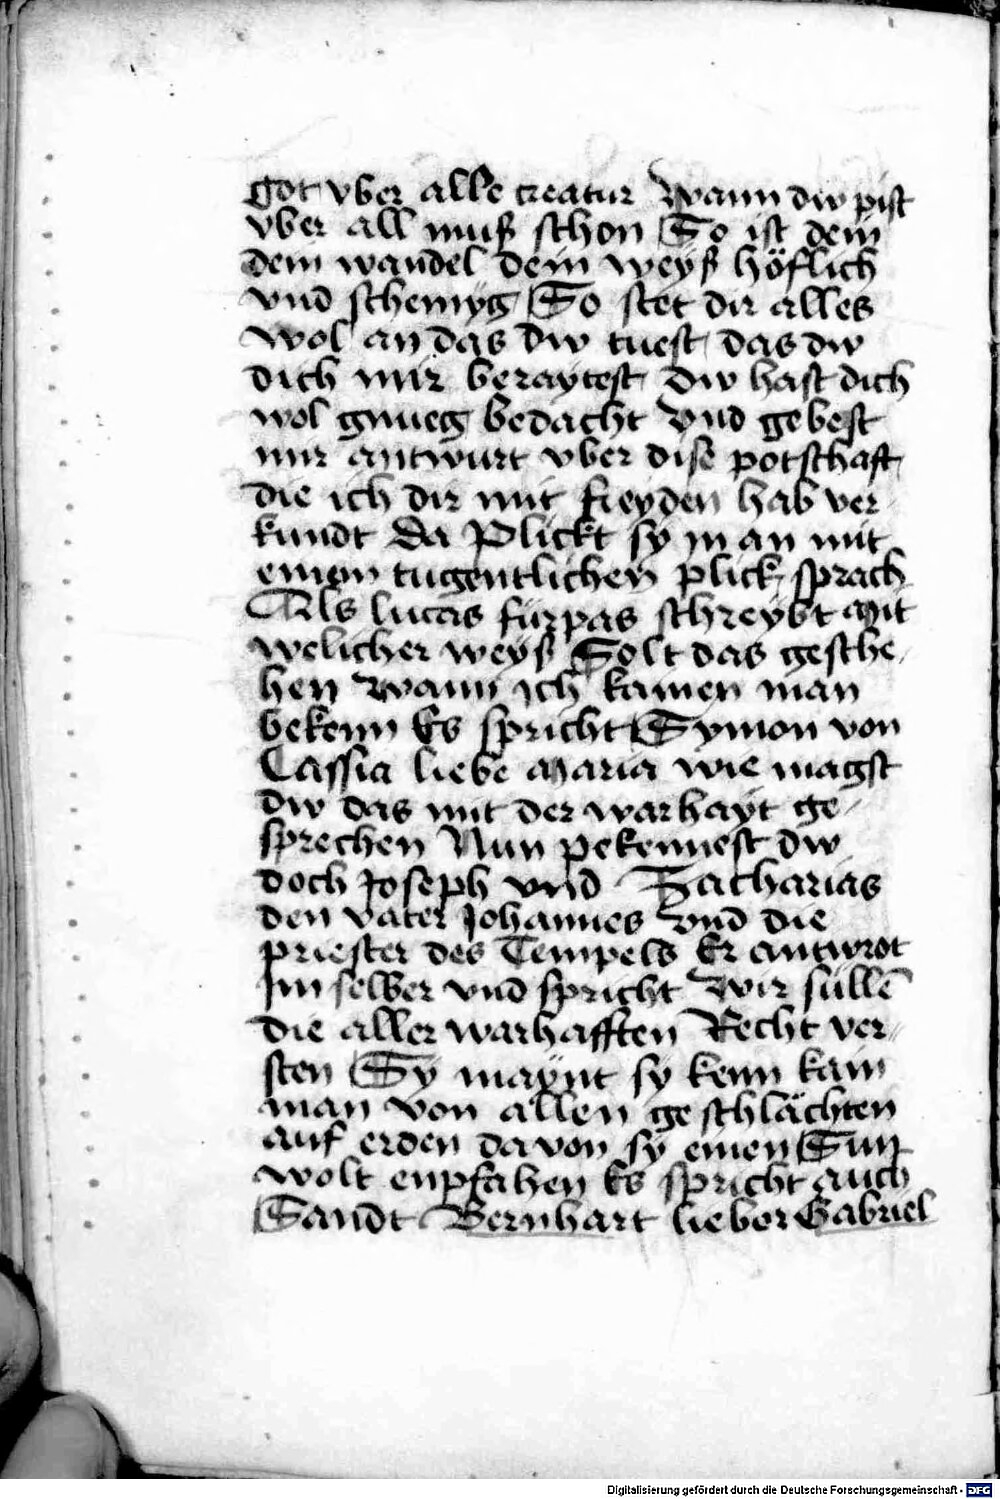 got vber alle creatur Wann dw pist
vber all muß schon So ist dein
dein wandel dein weyß höflich
vnd schemyg So stet dir alles
wol an das dw tuest das dw
dich mir beraytest Dw hast dich
wol gnueg bedacht Vnd gebest
mir antwurt vber dise potschaft
die ich dir mit freyden hab ver
kundt Da Plickt sy in an mit
einem tugentlichen plick sprach
Als lucas fürpas schreybt Mit
welicher weyß Solt das gesche,
hen Wann ich kainen man
bekenn Es spricht Symon von
Cassia liebe Maria wie magst
dw das mit der warhayt ge-
sprechen Nun pekennest dw
doch Joseph vnd Zacharias
den vater Johannes Vnd die
priester des Tempels Er antwrot
Im selber vnd spricht Wir sullē
die aller warhafften Recht ver-
sten Sy maÿnt sy kenn kain
man von allen geschlächten
auf erden davon sy einen Sun
wolt enpfahen Es spricht auch
Sandt Bernhart lieber Gabriel
Digitalisierung gefördert durch die Deutsche Forschungsgemeinschaft - DFG